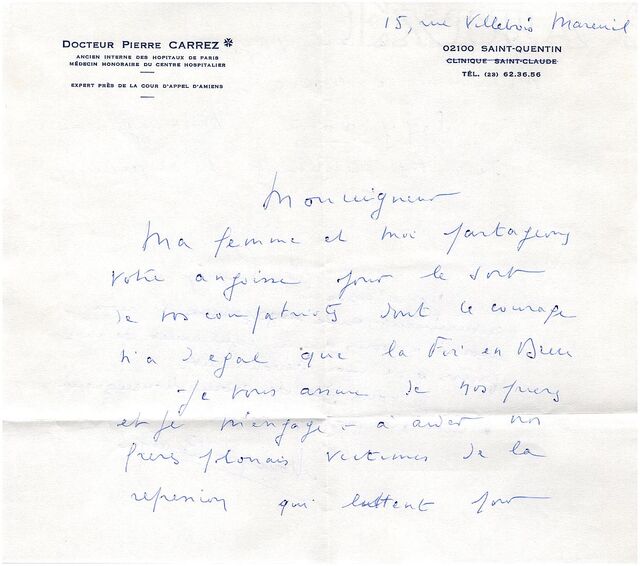 15, rue Villebois Mareuil
DOCTEUR PIERRE CARREZ
ANCIEN INTERNE DES HOPITAUX DE PARIS
MÉDECIN HONORAIRE DU CENTRE HOSPITALIER
EXPERT PRÈS DE LA COUR D'APPEL D'AMIENS
02100 SAINT-QUENTIN
CLINIQUE SAINT-CLAUDE
TÉL. (23) 62.36.56
Monseigneur
Ma femme et moi partageons
votre angoisse pour le sort
de vos compatriotes dont le courage
n'a d'egal que la Foi en Dieu
Je vous assure de nos prieres
et je m'engage à aider nos
freres polonais victimes de la
repression qui luttent pour